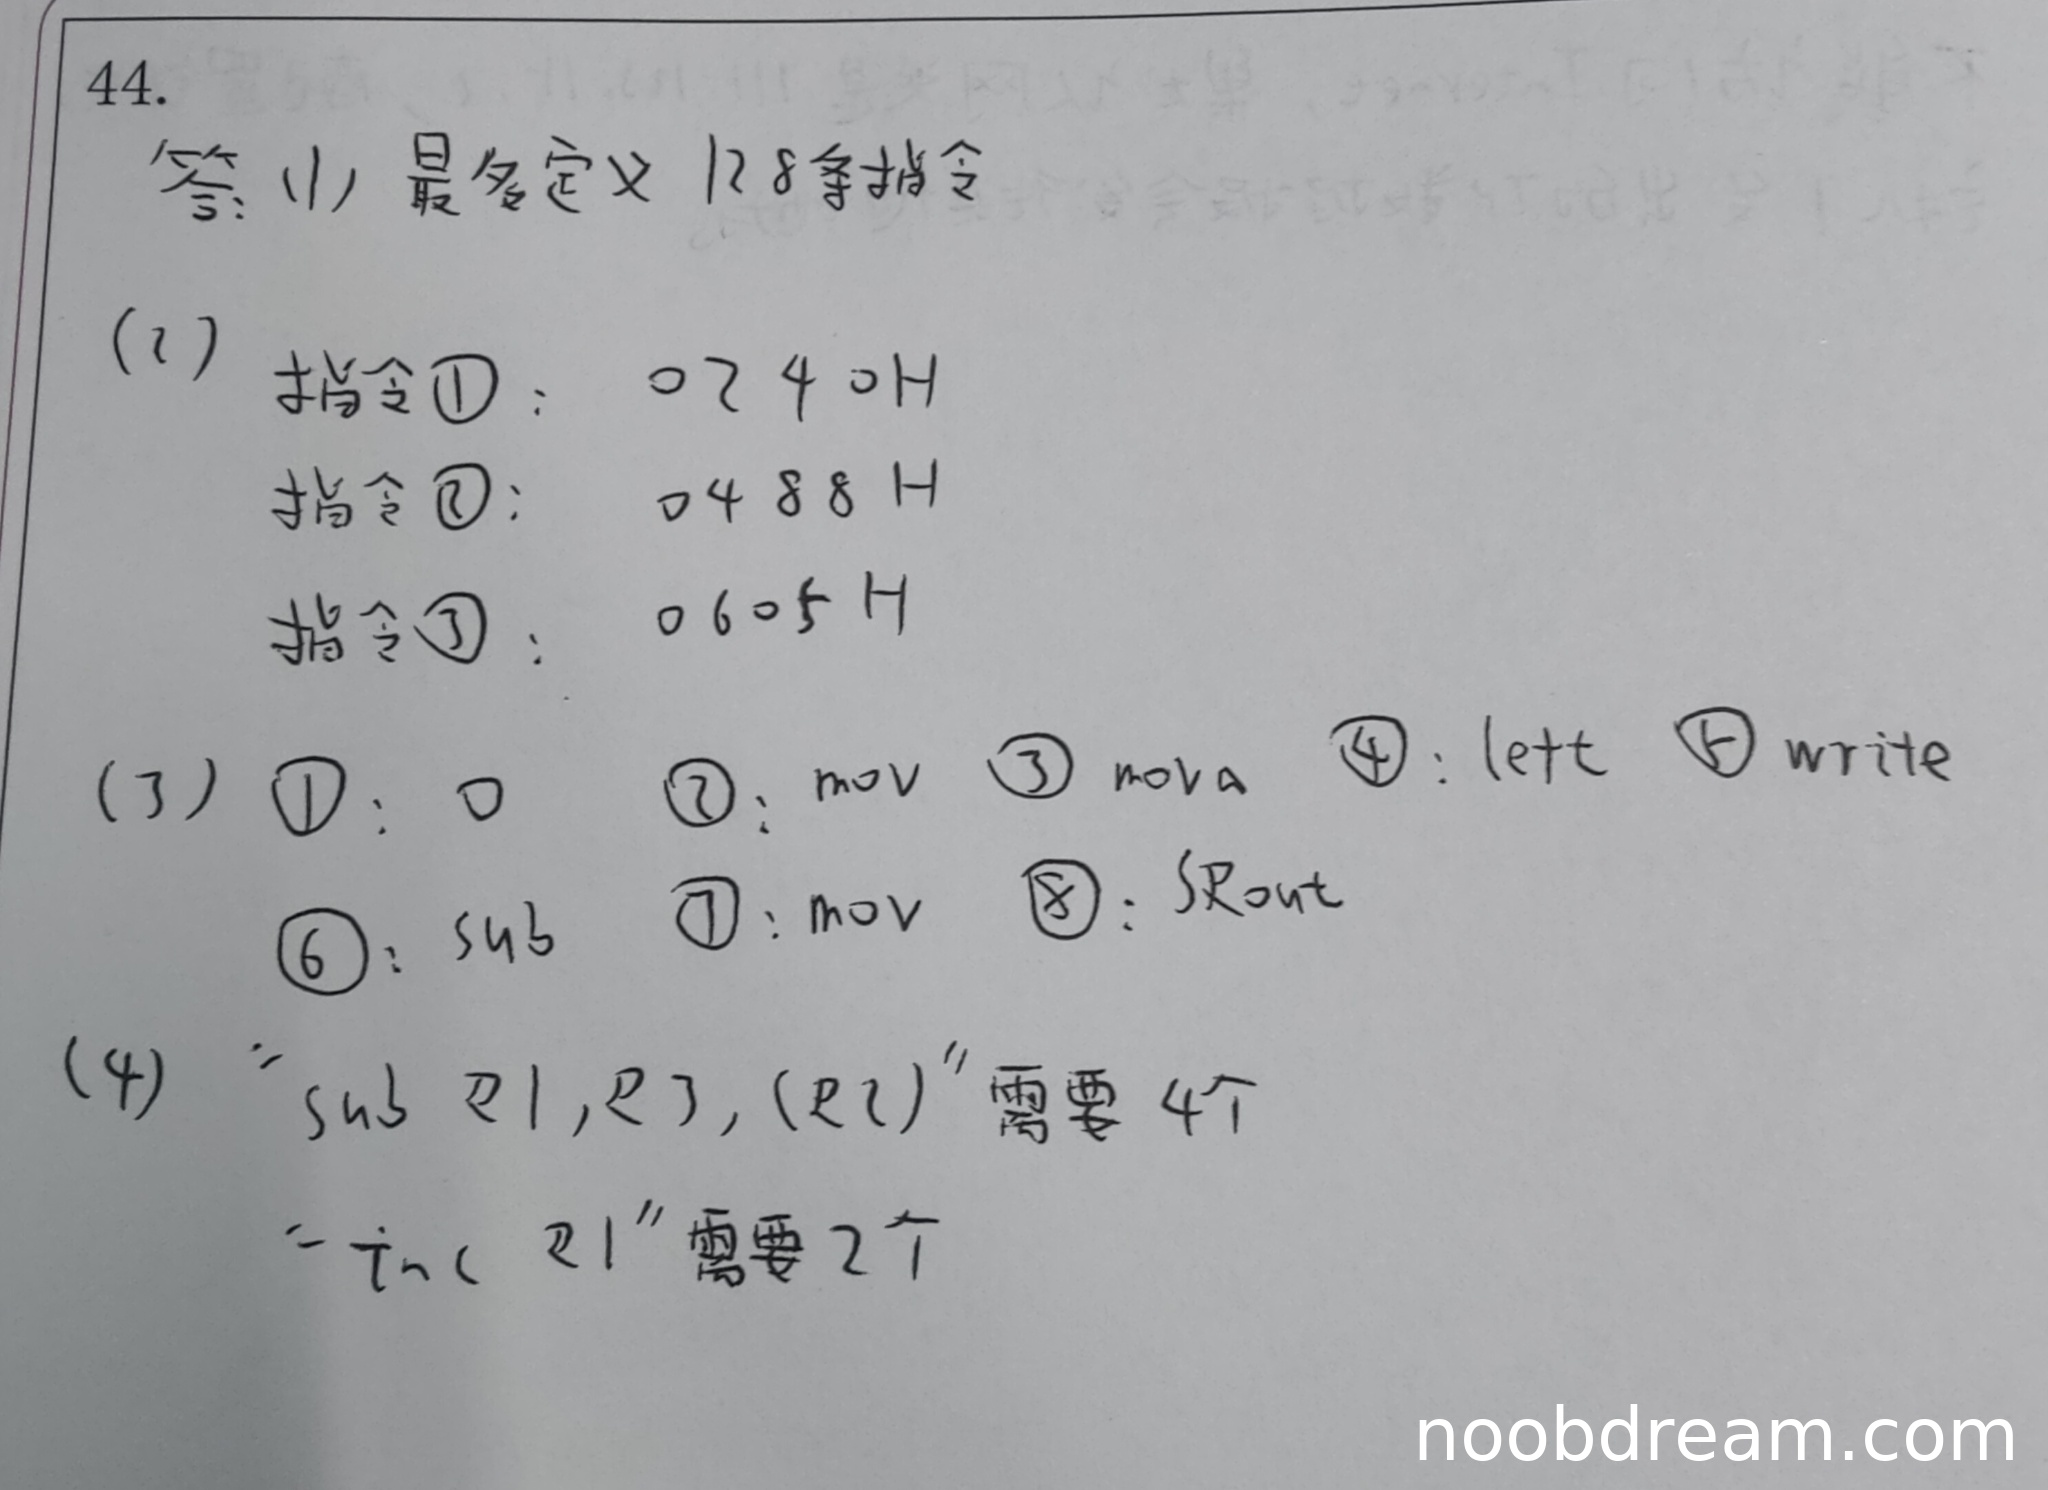 44.
答:(1) 最多定义 128条指令
(2)
指令①: 0240H
指令②: 0488H
指令③: 0605H
(3) ①: 0 ②: mov ③ mova ④: left ⑤ write
⑥: sub ⑦: mov ⑧: SRout
(4) "sub R1, R3, (R2)" 需要 4个
"inc R1" 需要 2个
noobdream.com